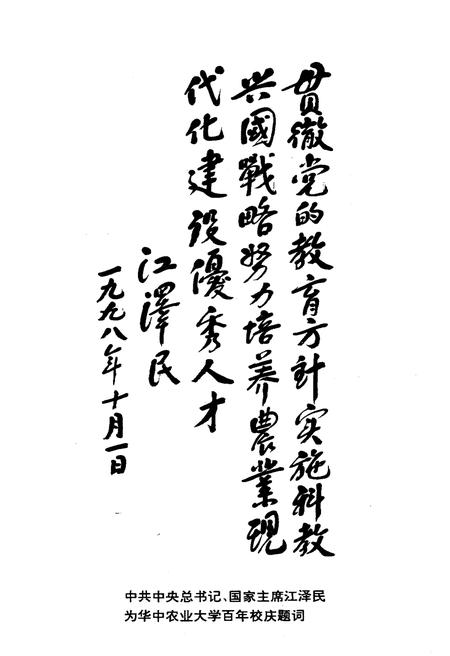 贯徹党的教育方针实施科教
兴國戰略努力培养農業現
代化建设優秀人才
江澤民
一九九八年十月一日
中共中央总书记、国家主席江泽民
为华中农业大学百年校庆题词